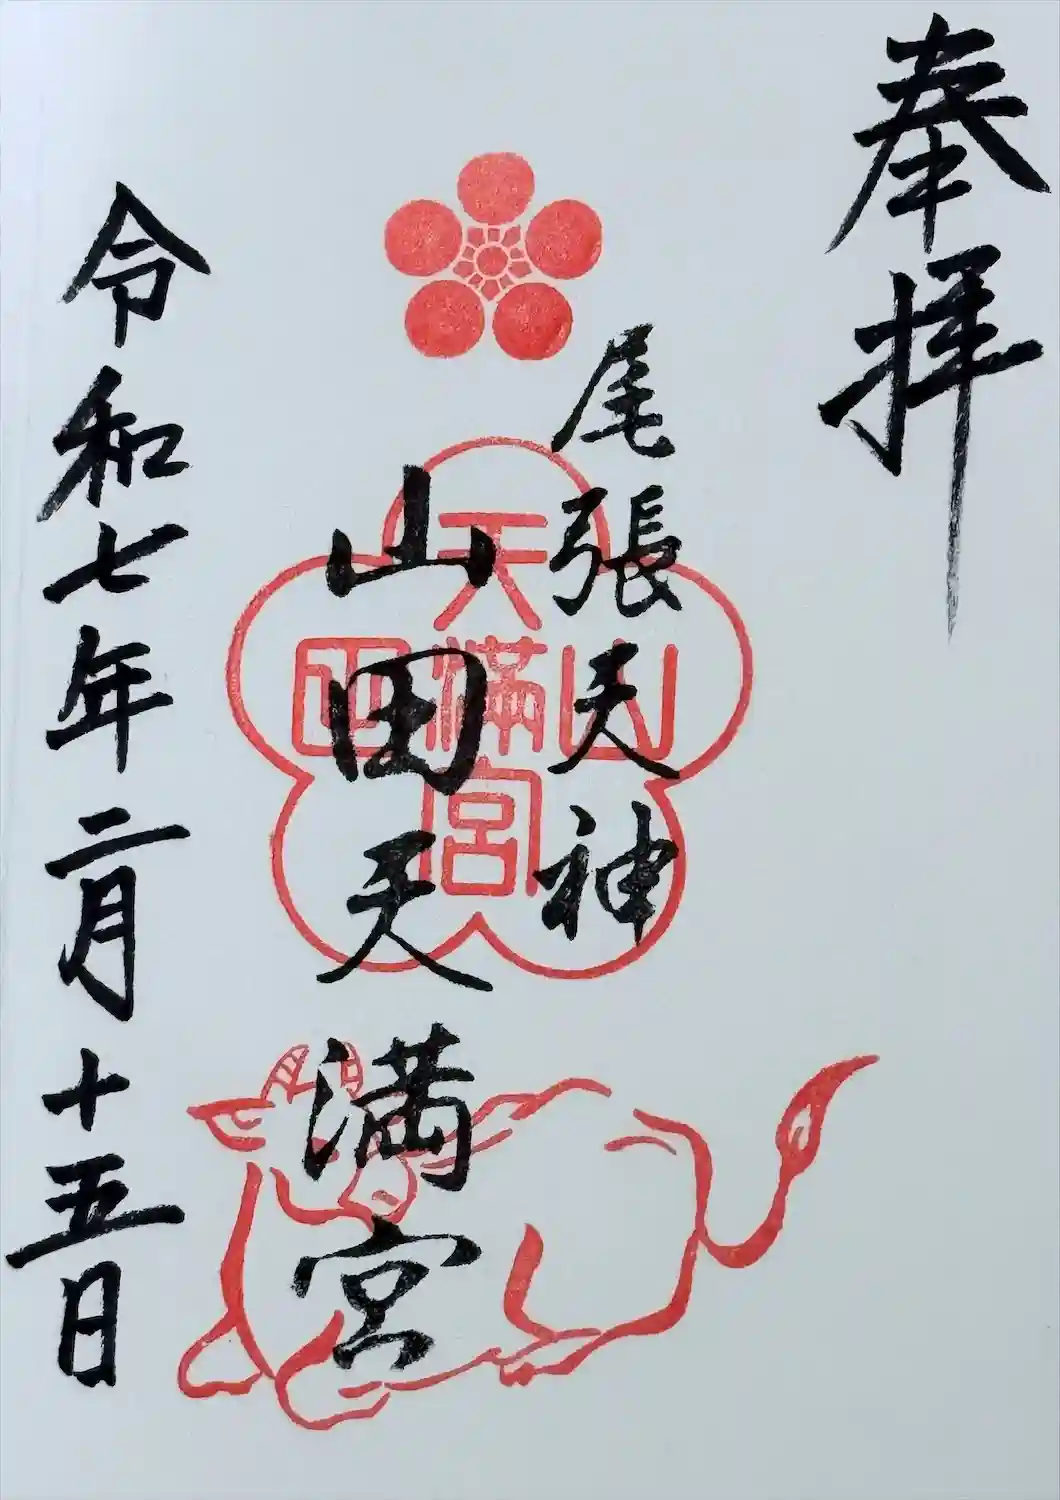 奉拝
尾張天神
山田天満宮
天
山満田
宮
令和七年二月十五日